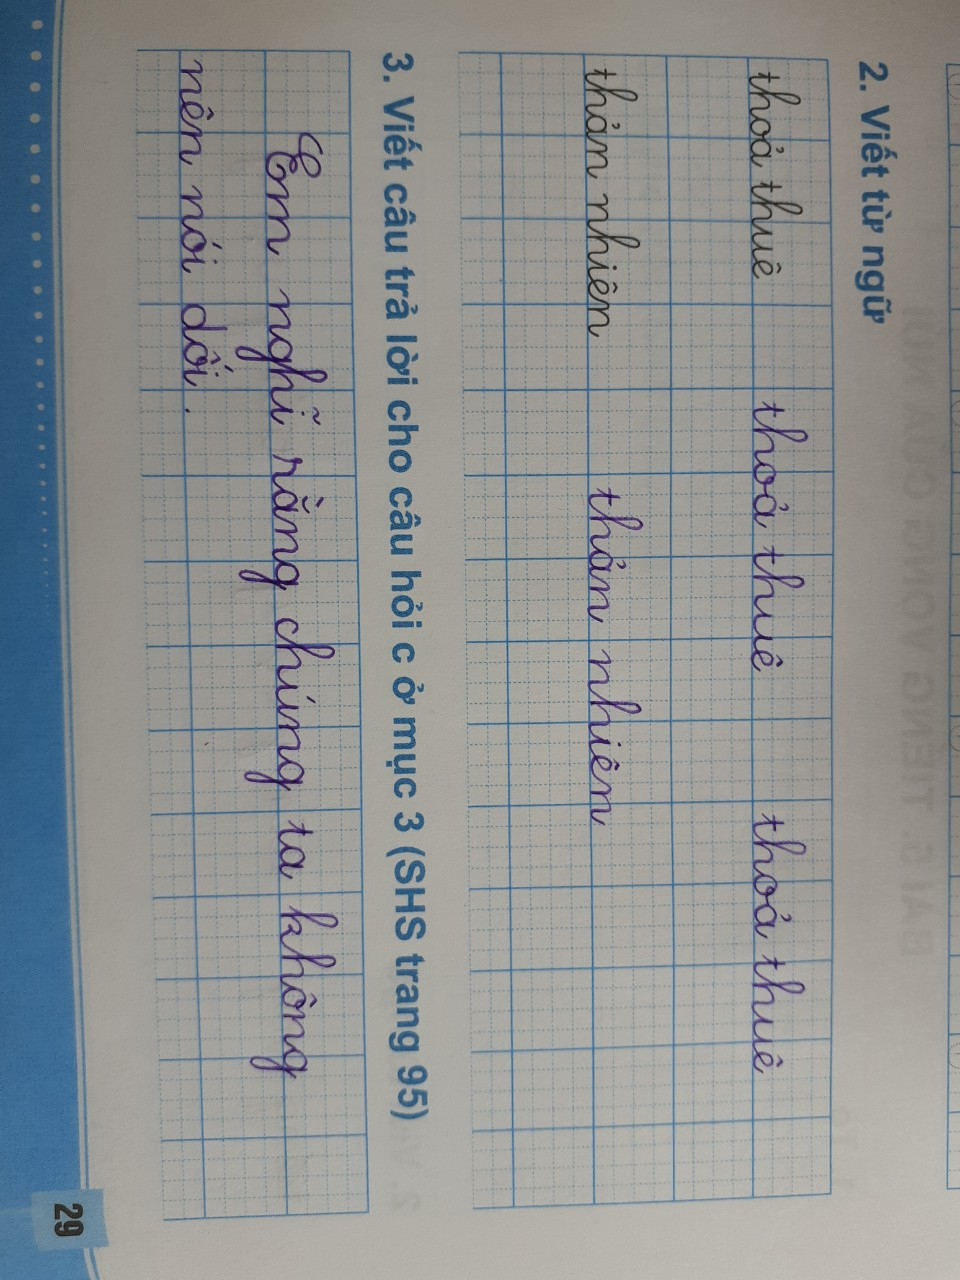 2. Viết từ ngữ
thoả thuê thoả thuê thoả thuê
thản nhiên thản nhiên
3. Viết câu trả lời cho câu hỏi c ở mục 3 (SHS trang 95)
Em nghĩ rằng chúng ta không
nên nói dối.
29